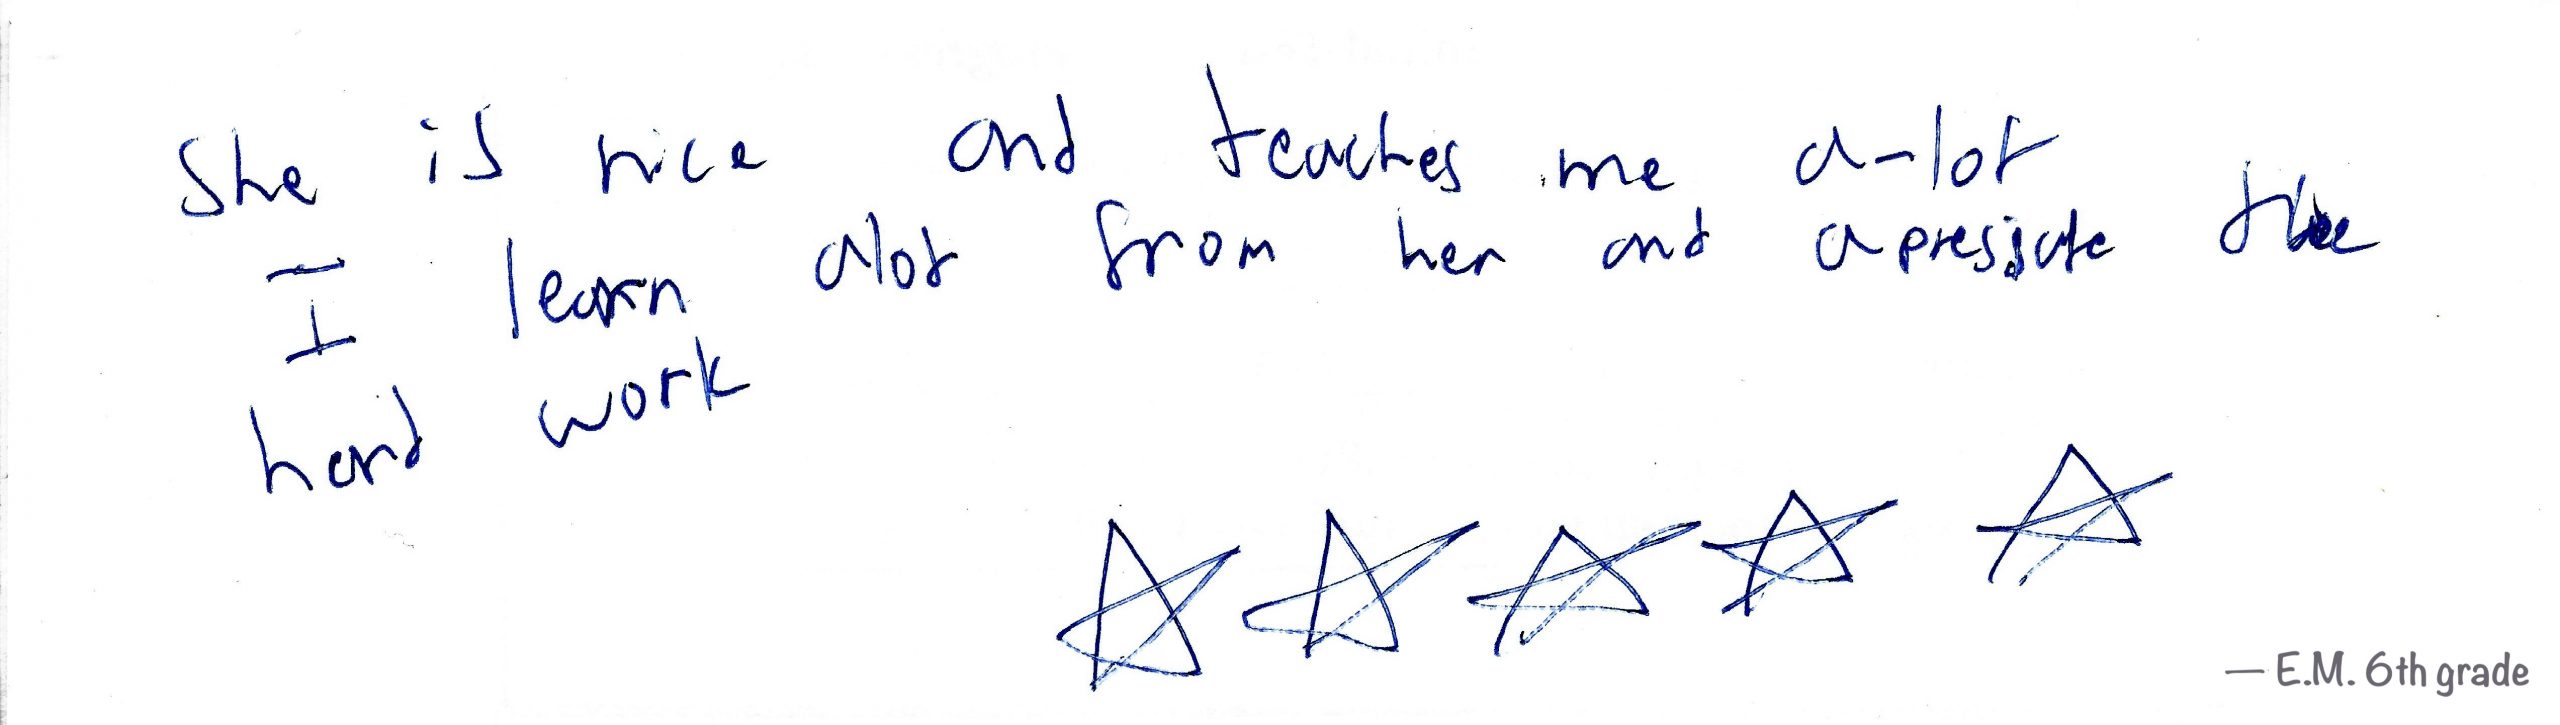 She is nice and teaches me a-lot
I learn alot from her and apresiate the
hard work
— E.M. 6th grade